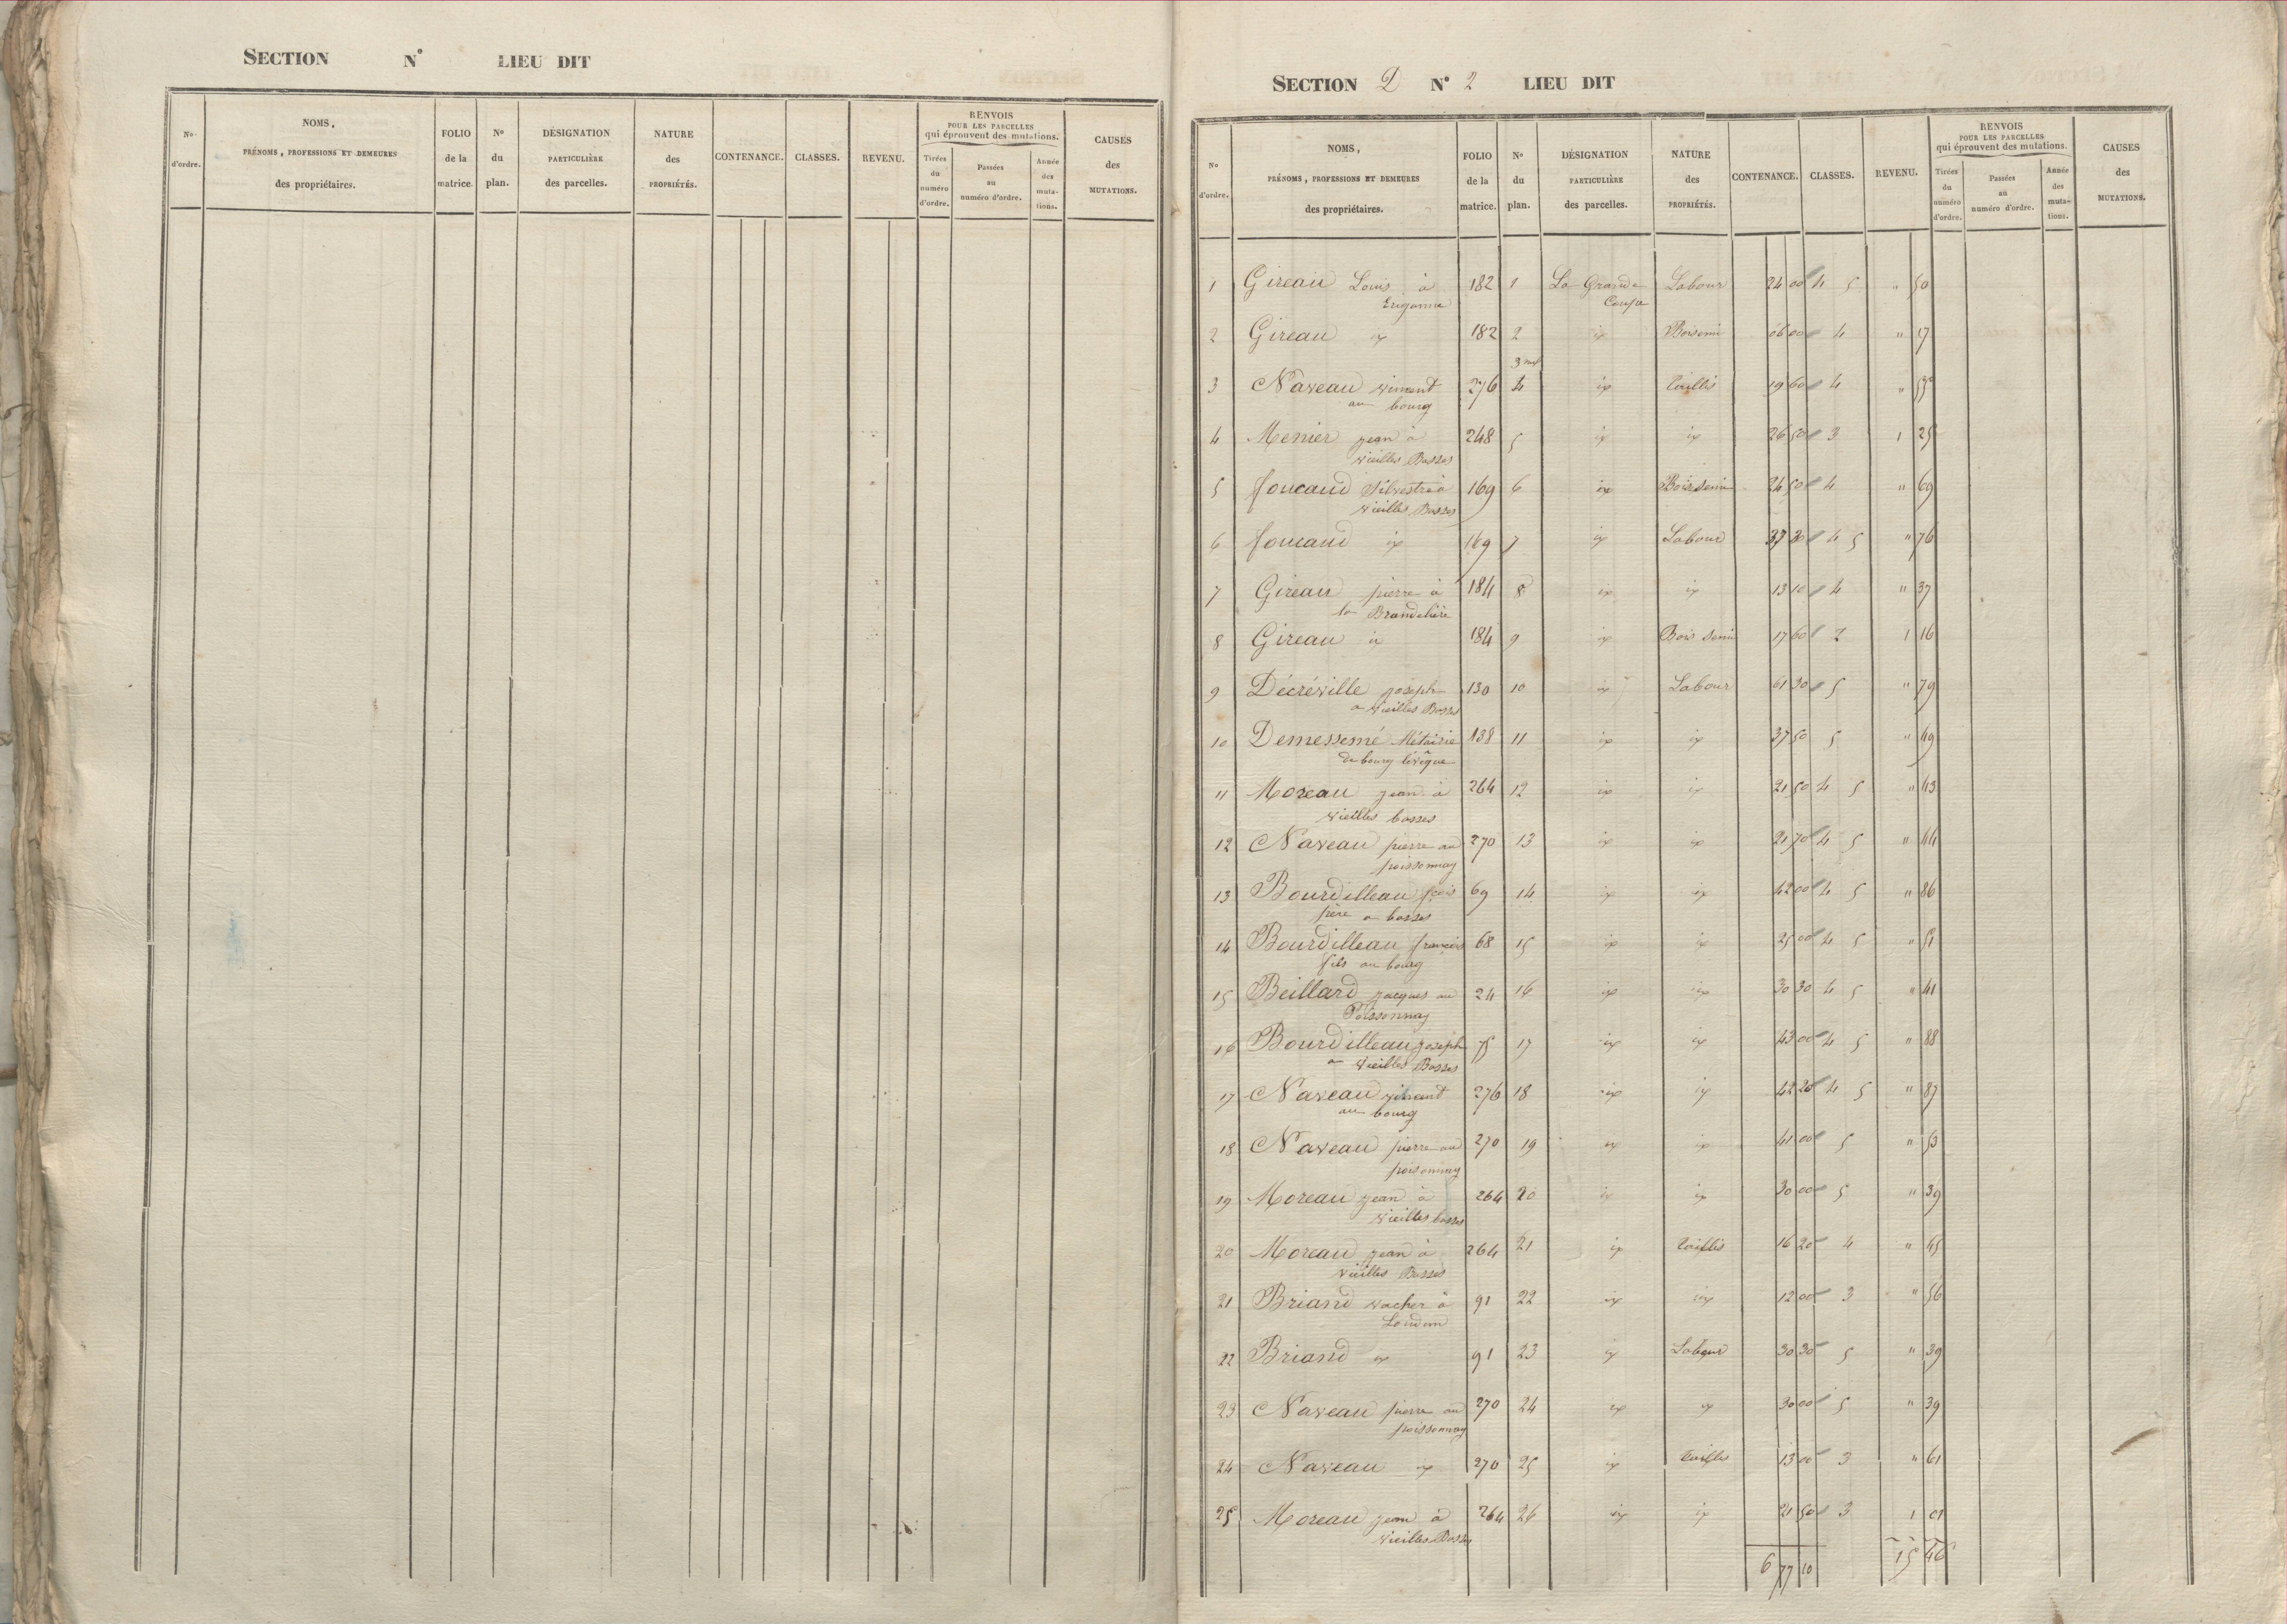 SECTION N° LIEU DIT
N° d'ordre. NOMS, PRÉNOMS, PROFESSIONS ET DEMEURES des propriétaires. FOLIO de la matrice. N° du plan. DÉSIGNATION PARTICULIÈRE des parcelles. NATURE des PROPRIÉTÉS. CONTENANCE. CLASSES. REVENU. RENVOIS POUR LES PARCELLES qui éprouvent des mutations. Tirées du numéro d'ordre. Passées au numéro d'ordre. Année des mutations. CAUSES des MUTATIONS.
SECTION D N° 2 LIEU DIT
N° d'ordre. NOMS, PRÉNOMS, PROFESSIONS ET DEMEURES des propriétaires. FOLIO de la matrice. N° du plan. DÉSIGNATION PARTICULIÈRE des parcelles. NATURE des PROPRIÉTÉS. CONTENANCE. CLASSES. REVENU. RENVOIS POUR LES PARCELLES qui éprouvent des mutations. Tirées du numéro d'ordre. Passées au numéro d'ordre. Année des mutations. CAUSES des MUTATIONS.
1 Gireau Louis à 182 1 La Grande Labour 24 00 4 5 " 50
Coupe
2 Gireau ip 182 2 ip " 17
06 00 4
3 Naveau vincent 276 4 ip Taillis 19 60 4 " 55
au bourg
4 Menier jean à 248 5 ip ip 26 50 3 1 25
vieilles Bosses
5 foucaud Silvestre à 169 6 ip Bois semi 24 50 4 " 69
vieilles Bosses
6 foucaud ip 169 7 ip Labour 37 30 4 5 " 76
7 Gireau pierre à 184 8 ip ip 13 10 4 " 37
la Brandelière
8 Gireau ip 184 9 ip Bois semi 17 60 2 1 16
9 Décréville joseph 130 10 ip Labour 61 30 5 " 79
a vieilles Bosses
10 Demessemé Métairie 138 11 ip ip 37 50 5 " 49
de bourg l'évêque
11 Moreau jean à 264 12 ip ip 21 50 4 5 " 43
vieilles bosses
12 Naveau pierre au 270 13 ip ip 21 70 4 5 " 44
poissonnay
13 Bourdilleau fçois 69 14 ip ip 42 00 4 5 " 86
père a bosses
14 Bourdilleau françois 68 15 ip ip 25 00 4 5 " 51
fils au bourg
15 Beillard jacques au 24 16 ip ip 30 30 4 5 " 41
Poissonnay
16 Bourdilleau joseph 75 17 ip ip 43 00 4 5 " 88
a vieilles Bosses
17 Naveau vincent 276 18 ip ip 42 20 4 5 " 87
au bourg
18 Naveau pierre au 270 19 ip ip 41 00 5 " 53
poisonnay
19 Moreau jean à 264 20 ip ip 30 00 5 " 39
vieilles bosses
20 Moreau jean à 264 21 ip Taillis 16 20 4 " 45
vieilles Bosses
21 Briand vacher à 91 22 ip ip 12 00 3 " 56
Loudun
22 Briand ip 91 23 ip Labour 30 30 5 " 39
23 Naveau pierre au 270 24 ip ip 30 00 5 " 39
poissonnay
24 Naveau ip 270 25 ip Taillis 13 3 " 61
25 Moreau jean à 264 26 ip ip 21 50 3 1 01
vieilles Bosses
6 77 10 15 46